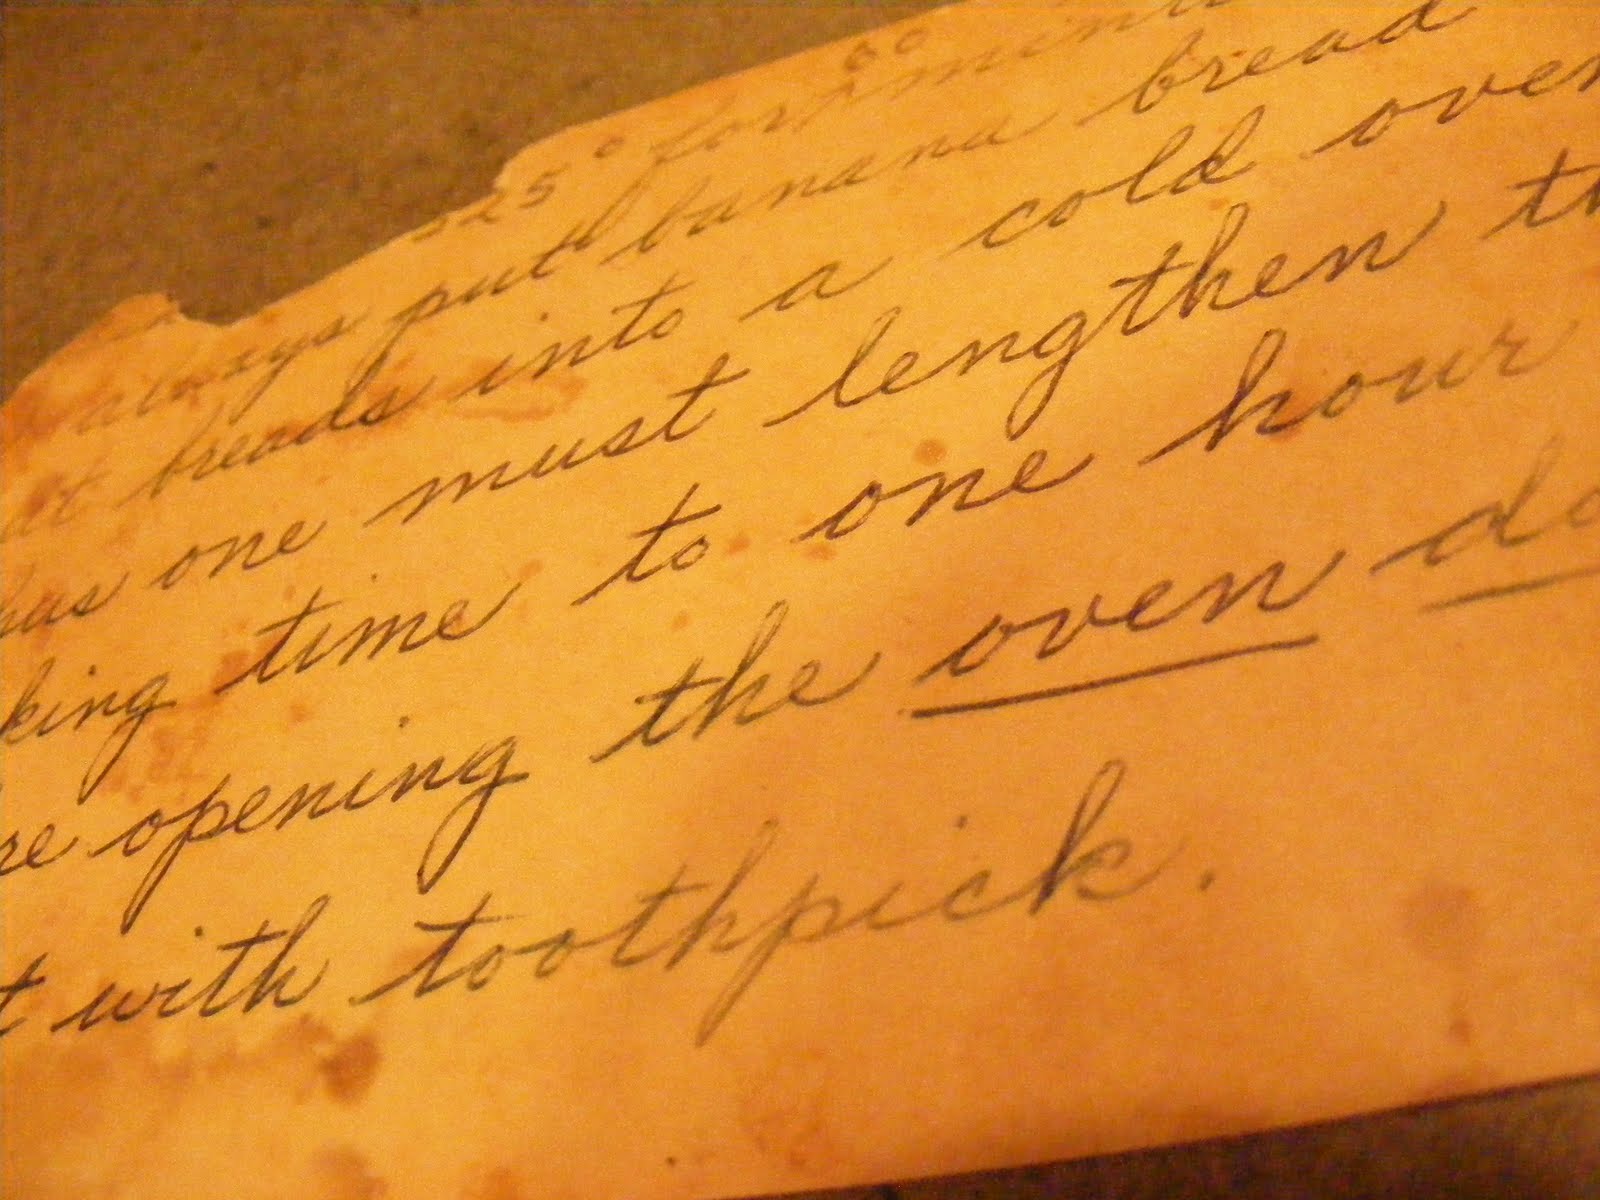 325° for 60 minut
always put banana bread
t breads into a cold oven
has one must lengthen th
king time to one hour
re opening the oven do
t with toothpick.